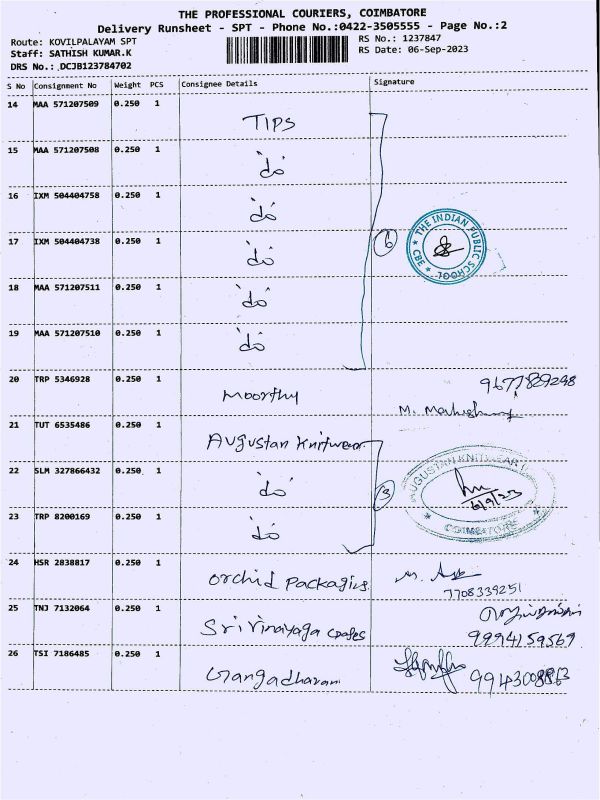 THE PROFESSIONAL COURIERS, COIMBATORE
Delivery Runsheet - SPT - Phone No.:0422-3505555 - Page No.:2
Route: KOVILPALAYAM SPT
RS No.: 1237847
Staff: SATHISH KUMAR.K
RS Date: 06-Sep-2023
DRS No.: DCJB123784702
S No Consignment No Weight PCS Consignee Details Signature
14 MAA 571207509 0.250 1 TIPS
15 MAA 571207508 0.250 1 do
16 IXM 504404758 0.250 1 do
17 IXM 504404738 0.250 1 do
6
THE INDIAN PUBLIC SCHOOL
CBE
18 MAA 571207511 0.250 1 do
19 MAA 571207510 0.250 1 do
20 TRP 5346928 0.250 1 Moorthy
9677829248
21 TUT 6535486 0.250 1 Augustan Knitwear
22 SLM 327866432 0.250 1 do
3
AUGUSTAN KNITWEAR
6/9/23
COIMBATORE
23 TRP 8200169 0.250 1 do
24 HSR 2838817 0.250 1 Orchid Packaging
7708339251
25 TNJ 7132064 0.250 1 Sri Vinayaga
9994159569
26 TSI 7186485 0.250 1 Gangadharam